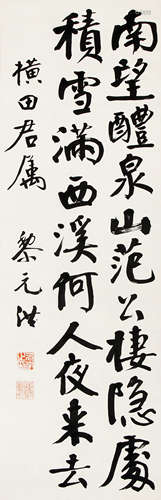 南望醴泉山范公棲隐處
積雪滿西溪何人夜來去
橫田君属
黎元洪